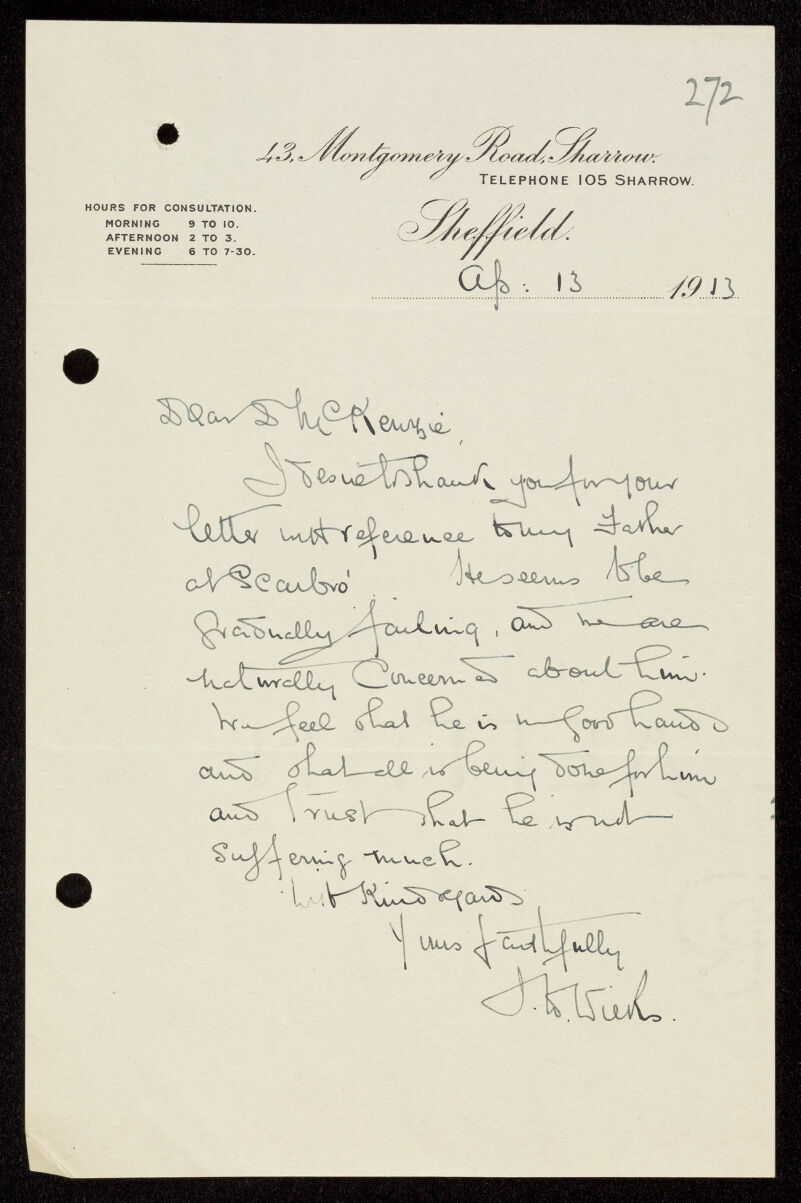 272
43, Montgomery Road, Sharrow.
TELEPHONE 105 SHARROW.
HOURS FOR CONSULTATION.
MORNING 9 TO 10.
AFTERNOON 2 TO 3.
EVENING 6 TO 7-30.
Sheffield.
Ap: 13 1913
Dear D McKenzie,
I desire to thank you for your
letter with reference to my Father
at Scarbro'. He seems to be
gradually failing, and we are
naturally concerned about him.
We feel that he is in good hands
and that all is being done for him
and trust that he is not
suffering much.
With Kind regards
Yours faithfully